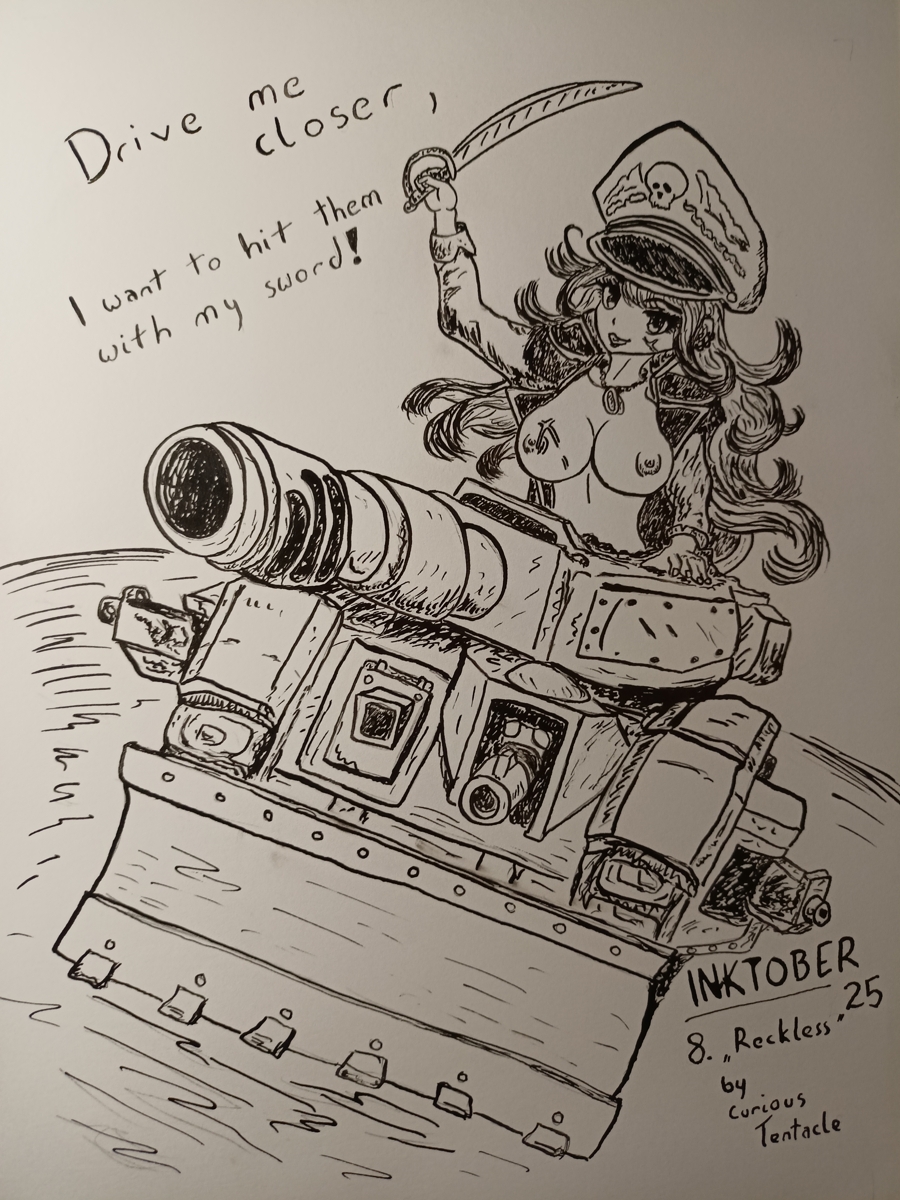 Drive me
closer,
I want to hit them
with my sword!
INKTOBER
25
8. „Reckless"
by
Curious
Tentacle